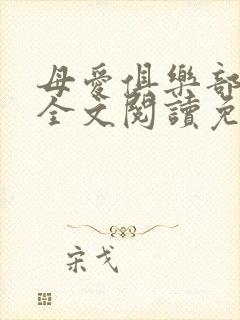 母愛俱樂部
全文閱讀免
宋戈